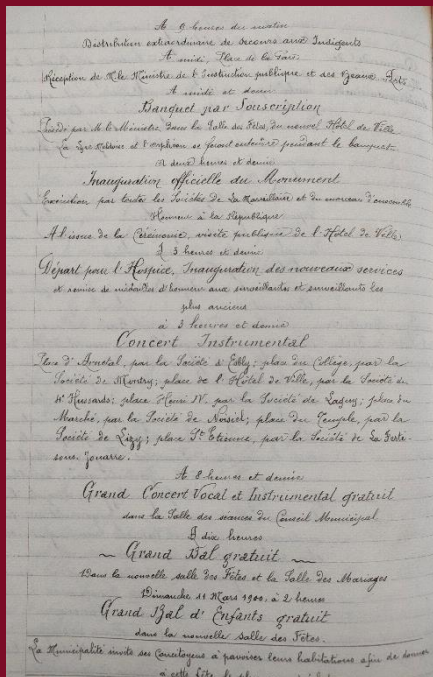 A 9 heures du matin
Distribution extraordinaire de secours aux Indigents
A midi, Place de la Paix.
Réception de M. le Ministre de l'Instruction publique et des Beaux Arts
A midi et demi
Banquet par Souscription
Présidé par M. le Ministre, dans la Salle des Fêtes, du nouvel Hôtel de Ville
La Lyre Meldoise et l'orphéon se feront entendre pendant le banquet
A deux heures et demie
Inauguration officielle du Monument
Exécution par toutes les Sociétés de La Marseillaise et du morceau d'ensemble
Honneur à la République
A l'issue de la Cérémonie, visite publique de l'Hôtel de Ville
à 3 heures et demie
Départ pour l'Hospice, Inauguration des nouveaux services
et remise de médailles d'honneur aux surveillantes et surveillants les
plus anciens
à 3 heures et demie
Concert Instrumental
Place d', par la Société d'Esbly; place du Collège, par la
Société de Monthy; place de l'Hôtel de Ville, par la Société du
4e Hussards; place Henri IV, par la Société de Lagny; place du
Marché, par la Société de Noisiel; place du Temple, par la
Société de Lizy; place St Etienne, par la Société de La Ferté-
sous-Jouarre.
A 8 heures et demie
Grand Concert Vocal et Instrumental gratuit
dans la Salle des séances du Conseil Municipal
à dix heures
Grand Bal gratuit
Dans la nouvelle salle des Fêtes et la Salle des Mariages
Dimanche 11 Mars 1900, à 2 heures
Grand Bal d'Enfants gratuit
dans la nouvelle salle des Fêtes.
La Municipalité invite ses Concitoyens à pavoiser leurs habitations afin de donner
à cette fête le plus